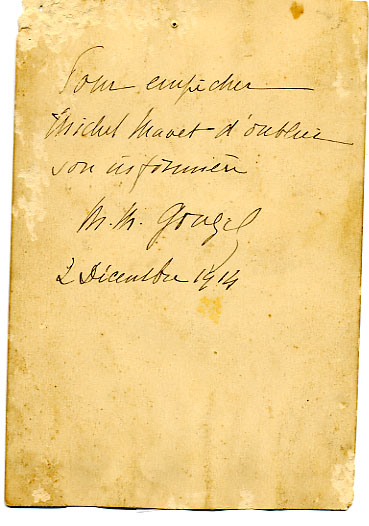 Pour empêcher
Michel Mavet d'oublier
son infirmière
M. M. Gougel
2 Décembre 1914